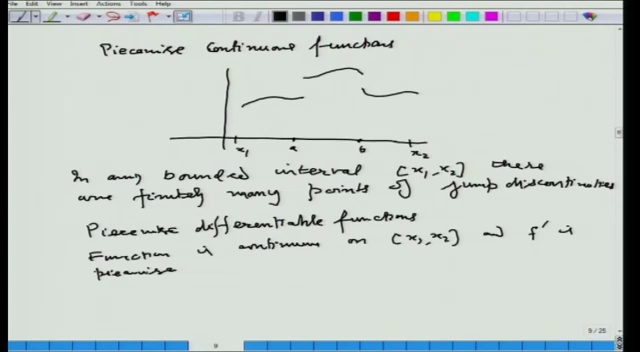 View Insert Actions Tools Help
Piecewise Continuous functions
x1 a b x2
In any bounded interval [x1, x2] there
are finitely many points of jump discontinuities
Piecewise differentiable functions
Function is continuous on [x1, x2] and f' is
piecewise
9/25
9